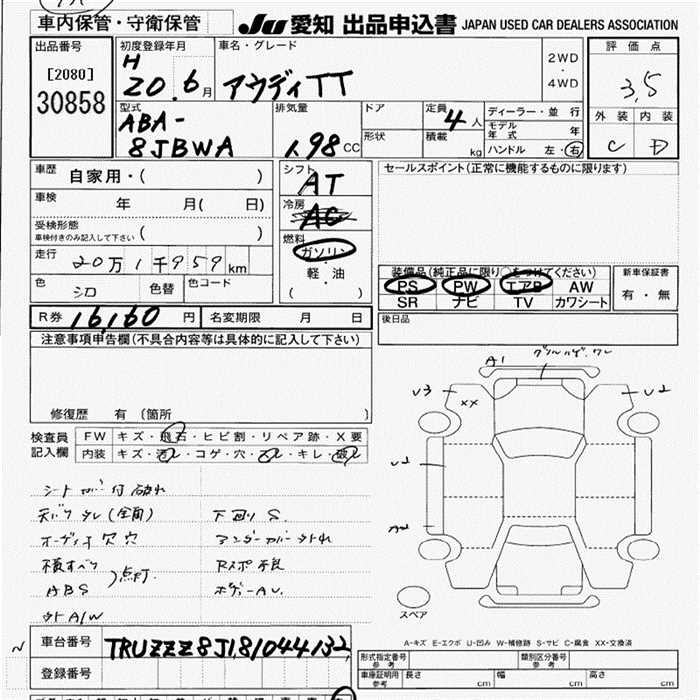 車内保管・守衛保管 JU 愛知 出品申込書 JAPAN USED CAR DEALERS ASSOCIATION
出品番号
[2080]
30858
初度登録年月
H
20.6月
車名・グレード
アウディTT
2WD
・
4WD
評価点
3,5
外装 内装
C D
型式
ABA-
8JBWA
排気量
1.98CC
ドア
形状
定員 4人
積載 kg
ディーラー・並行
モデル年式 年
ハンドル 左・右
車歴 自家用・( )
車検 年 月( 日)
受検形態
車検付きのみ記入して下さい ( )
走行 20万1千959km
色 シロ 色替 色コード
シフト
AT
冷房
AC
燃料
ガソリン
・
軽・油
( )
セールスポイント(正常に機能するものに限ります)
装備品(純正品に限り○をつけてください)
PS PW エアB AW
SR ナビ TV カワシート
新車保証書
有・無
R券 16,160円 名変期限 月 日
後日品
注意事項申告欄(不具合内容等は具体的に記入して下さい)
修復歴 有 〔箇所 〕
検査員
記入欄
FW キズ・飛石・ヒビ割・リペア跡・X要
内装 キズ・汚レ・コゲ・穴・スレ・キレ・破レ
A1
U3
XX
U2
シート
破れ
天バリ タレ(全面)
下回り S.
オーディオ 穴 穴
アンダーカバー
横すべり
ABS
点灯
ボデーAU.
A/W
スペア
A-キズ E-エクボ U-凹み W-補修跡 S-サビ C-腐食 XX-交換済
車台番号 TRUZZZ8J181044132
登録番号
形式指定番号
参考
類別区分番号
参考
車庫証明用
参考
長さ cm 幅 cm 高さ cm